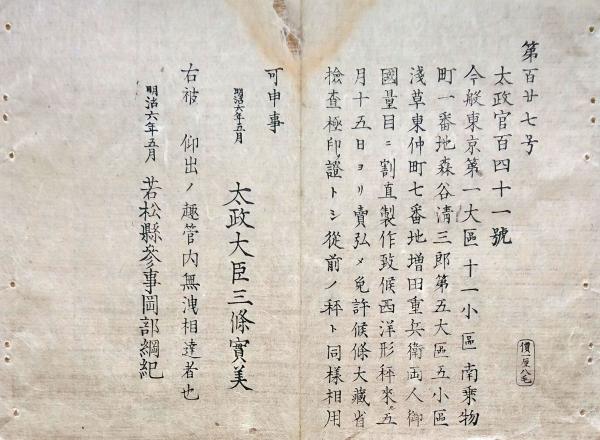 第百廿七号
太政官百四十一號
今般東京第一大區十一小區南乘物
町一番地森谷淸三郎第五大區五小區
淺草東仲町七番地增田重兵衛両人御
國量目ニ割直製作致候西洋形秤來ル五
月十五日ヨリ賣弘メ免許候條大藏省
檢査極印ヲ證トシ從前ノ秤ト同樣相用
可申事
明治六年五月
太政大臣三條實美
右被 仰出ノ趣管內無洩相達者也
明治六年五月
若松縣參事岡部綱紀
價一厘八毛